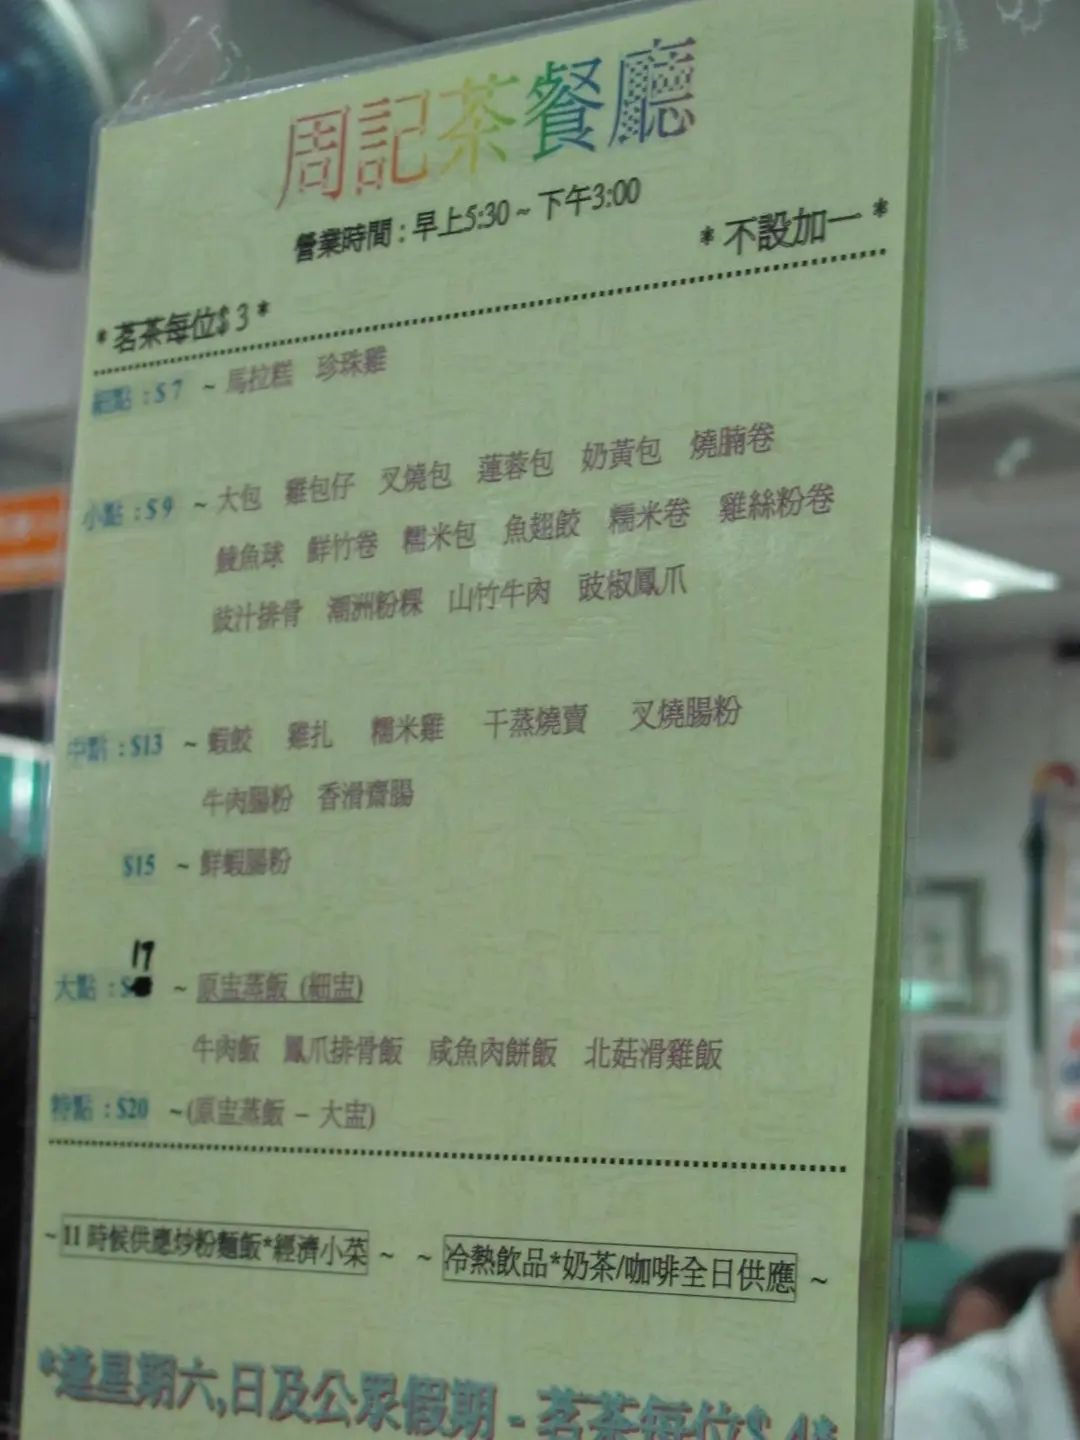 周記茶餐廳
營業時間 : 早上5:30 ~ 下午3:00
* 不設加一 *
* 茗茶每位$ 3 *
細點 : $ 7 ~ 馬拉糕 珍珠雞
小點 : $ 9 ~ 大包 雞包仔 叉燒包 蓮蓉包 奶黃包 燒腩卷
鯪魚球 鮮竹卷 糯米包 魚翅餃 糯米卷 雞絲粉卷
豉汁排骨 潮洲粉粿 山竹牛肉 豉椒鳳爪
中點 : $13 ~ 蝦餃 雞扎 糯米雞 干蒸燒賣 叉燒腸粉
牛肉腸粉 香滑齋腸
$15 ~ 鮮蝦腸粉
17
大點 : $ ~ 原盅蒸飯 (細盅)
牛肉飯 鳳爪排骨飯 咸魚肉餅飯 北菇滑雞飯
特點 : $20 ~(原盅蒸飯 – 大盅)
~ 11 時候供應炒粉麵飯*經濟小菜 ~ ~ 冷熱飲品*奶茶/咖啡全日供應 ~
*逢星期六,日及公眾假期 - 茗茶每位$ 4*